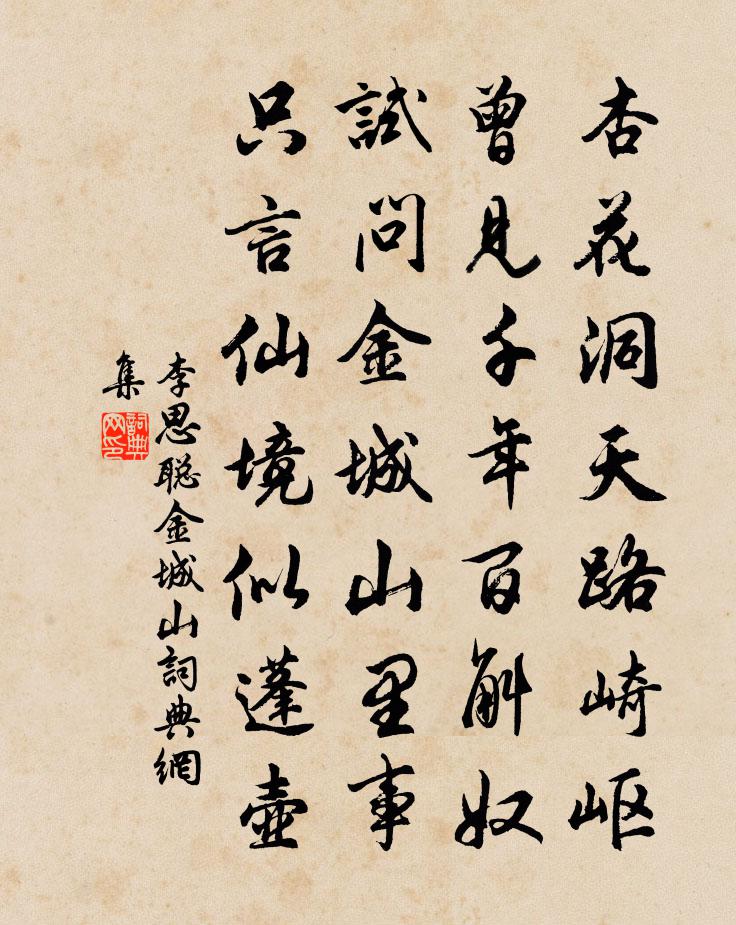 杏花洞天路崎岖
曾見千年百斛奴
試問金城山里事
只言仙境似蓬壺
李思聪金城山詞典網
集
詞典网印